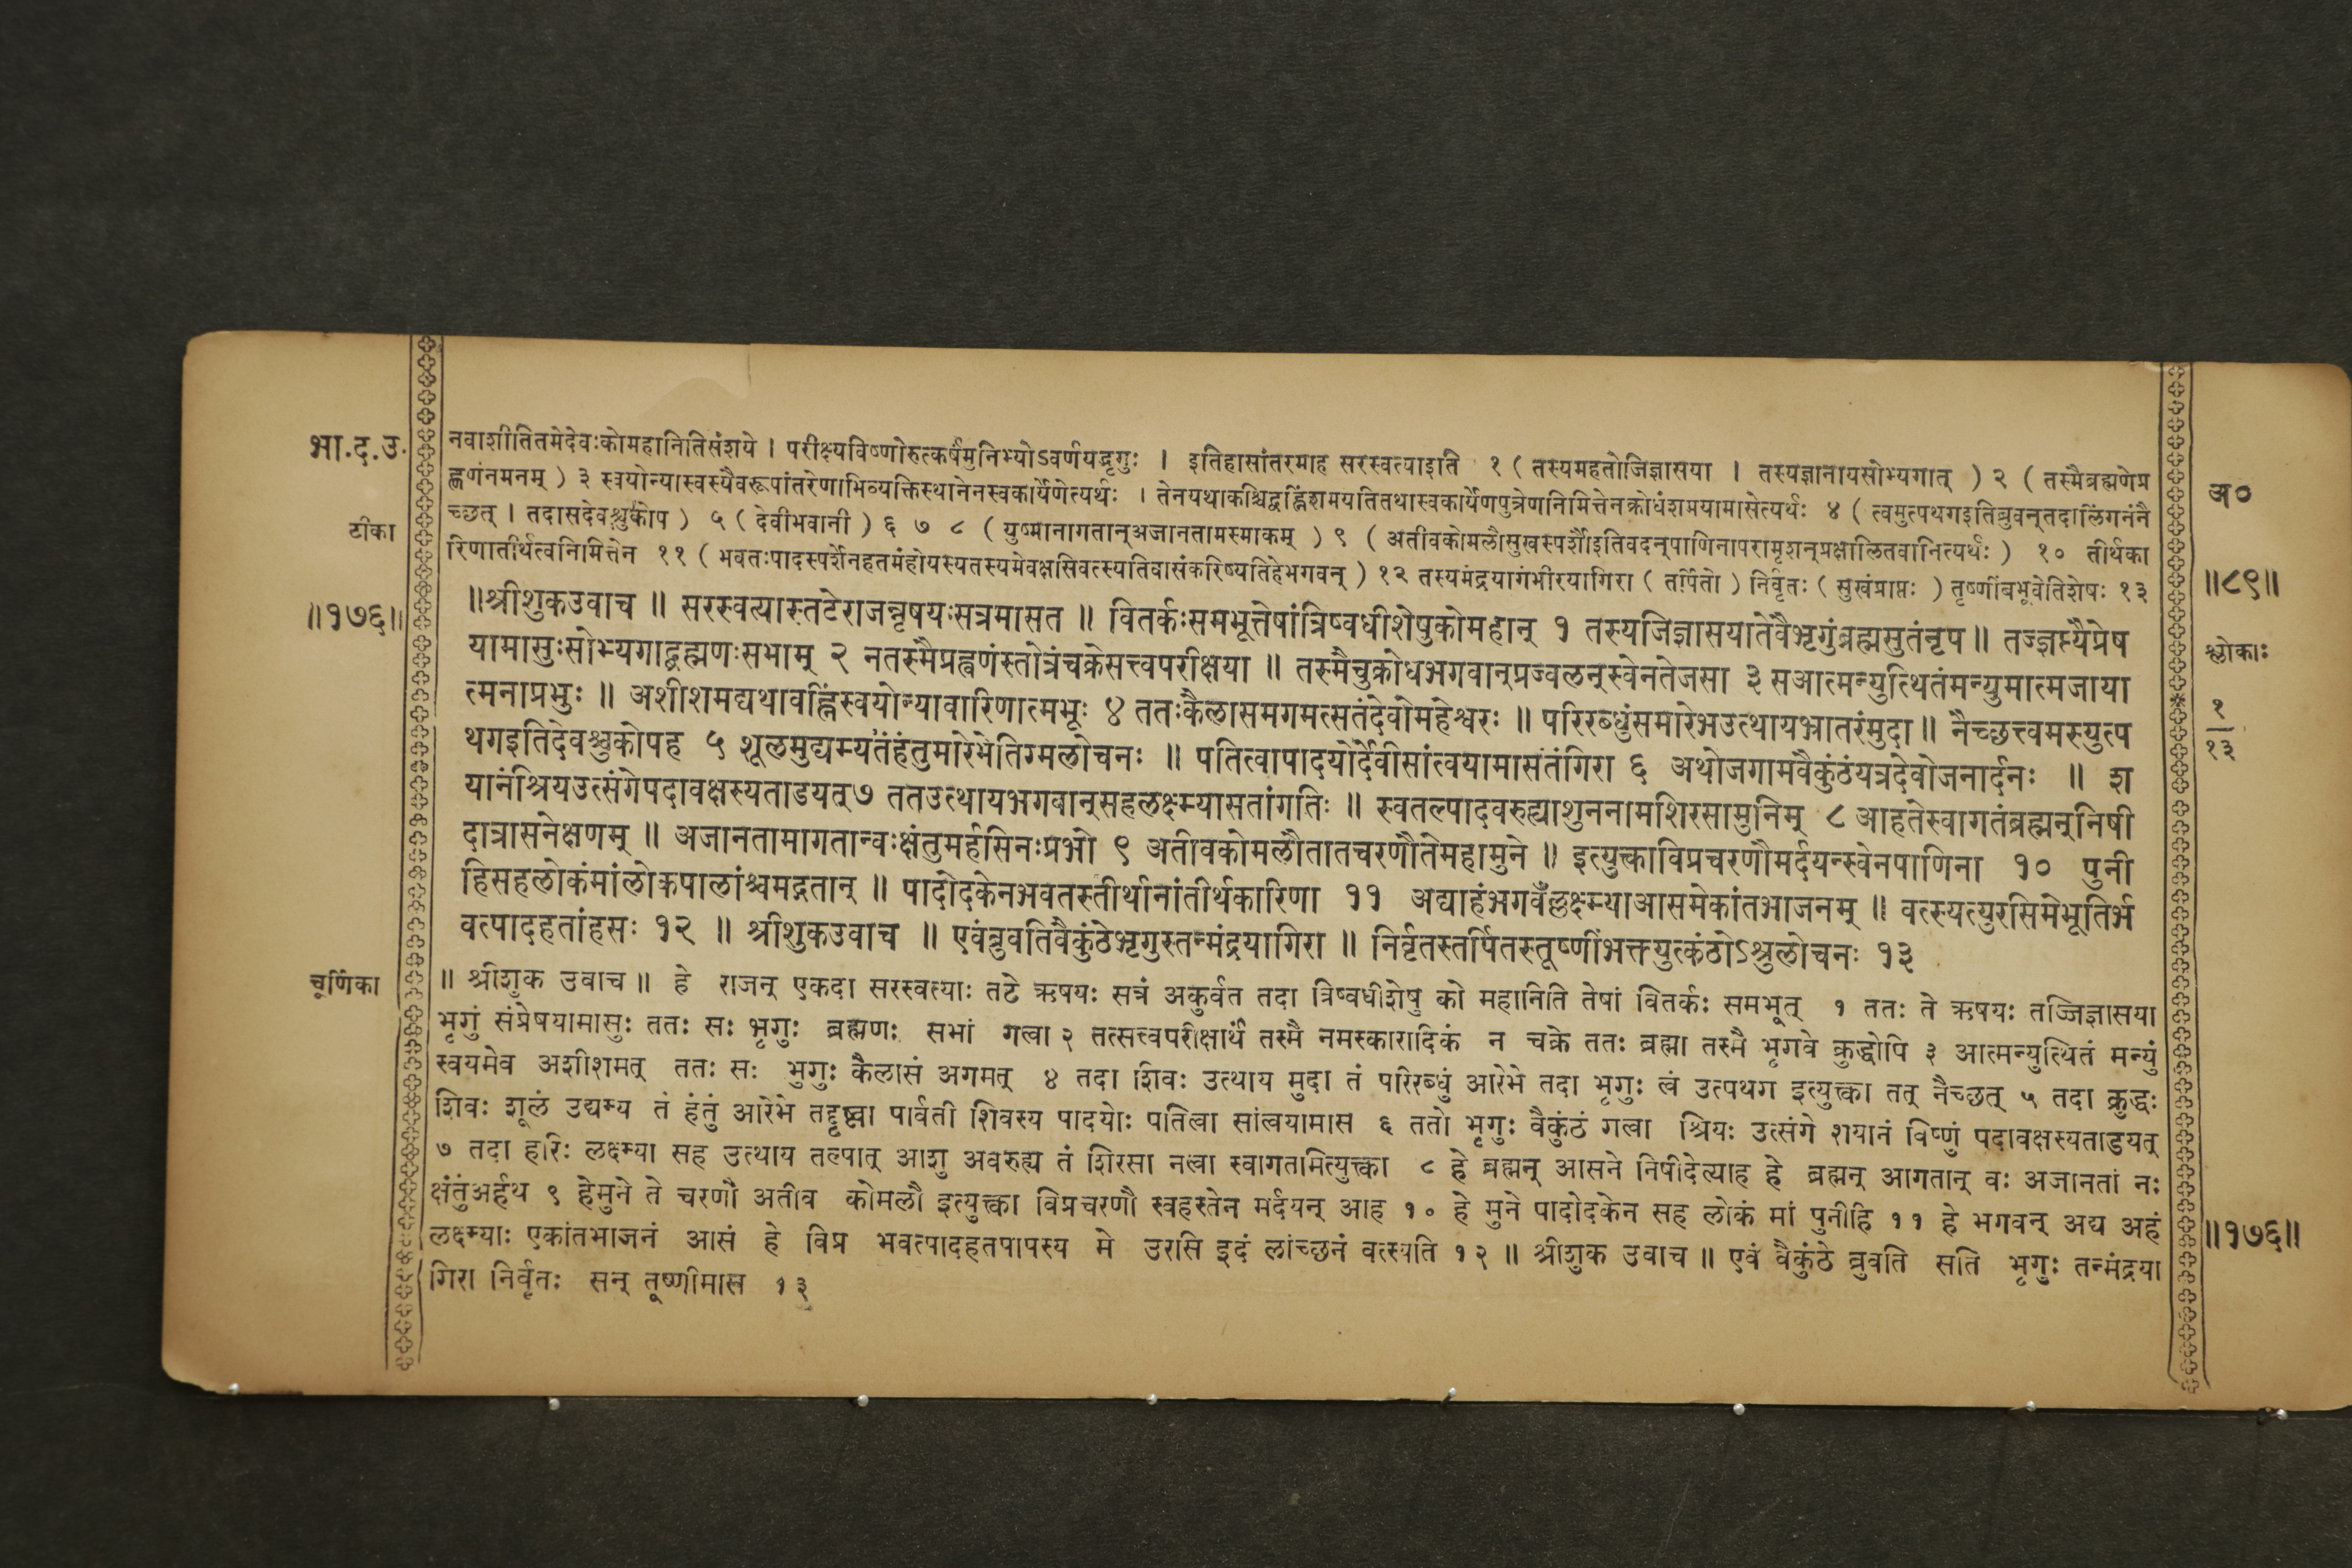 भा.द.उ.
टीका
॥१७६॥
चूर्णिका
नवाशीतितमेदेवःकोमहानितिसंशये । परीक्ष्यविष्णोरुत्कर्षंमुनिभ्योऽवर्णयद्भृगुः । इतिहासांतरमाह सरस्वत्याइति १ ( तस्यमहतोजिज्ञासया । तस्यज्ञानायसोभ्यगात् ) २ ( तस्मैब्रह्मणेप्र
ह्वणंनमनम् ) ३ स्वयोन्यास्वस्यैवरूपांतरेणाभिव्यक्तिस्थानेनस्वकार्येणेत्यर्थः । तेनयथाकश्चिद्वह्निंशमयतितथास्वकार्येणपुत्रेणनिमित्तेनक्रोधंशमयामासेत्यर्थः ४ ( त्वमुत्पथगइतिब्रुवन्‌तदालिंगनंनै
च्छत् । तदासदेवश्चुकोप ) ५ ( देवीभवानी ) ६ ७ ८ ( युष्मानागतान्‌अजानतामस्माकम् ) ९ ( अतीवकोमलौसुखस्पर्शौइतिवदन्‌पाणिनापरामृशन्‌प्रक्षालितवानित्यर्थः ) १० तीर्थका
रिणातीर्थत्वनिमित्तेन ११ ( भवतःपादस्पर्शेनहतमंहोयस्यतस्यमेवक्षसिवत्स्यतिवासंकरिष्यतिहेभगवन् ) १२ तस्यमंद्रयागंभीरयागिरा ( तर्पितो ) निर्वृतः ( सुखंप्राप्तः ) तूष्णींबभूवेतिशेषः १३
॥श्रीशुकउवाच ॥ सरस्वत्यास्तटेराजन्नृषयःसत्रमासत ॥ वितर्कःसमभूत्तेषांत्रिष्वधीशेषुकोमहान् १ तस्यजिज्ञासयातेवैभृगुंब्रह्मसुतंनृप ॥ तज्ज्ञप्त्यैप्रेष
यामासुःसोभ्यगाद्ब्रह्मणःसभाम् २ नतस्मैप्रह्वणंस्तोत्रंचक्रेसत्त्वपरीक्षया ॥ तस्मैचुक्रोधभगवान्‌प्रज्वलन्‌स्वेनतेजसा ३ सआत्मन्युत्थितंमन्युमात्मजाया
त्मनाप्रभुः ॥ अशीशमद्यथावह्निंस्वयोन्यावारिणात्मभूः ४ ततःकैलासमगमत्सतंदेवोमहेश्वरः ॥ परिरब्धुंसमारेभउत्थायभ्रातरंमुदा ॥ नैच्छत्त्वमस्युत्प
थगइतिदेवश्चुकोपह ५ शूलमुद्यम्यतंहंतुमारेभेतिग्मलोचनः ॥ पतित्वापादयोर्देवीसांत्वयामासतंगिरा ६ अथोजगामवैकुंठंयत्रदेवोजनार्दनः ॥ श
यानंश्रियउत्संगेपदावक्षस्यताडयत्७ ततउत्थायभगवान्‌सहलक्ष्म्यासतांगतिः ॥ स्वतल्पादवरुह्याशुननामशिरसामुनिम् ८ आहतेस्वागतंब्रह्मन्‌निषी
दात्रासनेक्षणम् ॥ अजानतामागतान्वःक्षंतुमर्हसिनःप्रभो ९ अतीवकोमलौतातचरणौतेमहामुने ॥ इत्युक्त्वाविप्रचरणौमर्दयन्स्वेनपाणिना १० पुनी
हिसहलोकंमांलोकपालांश्चमद्गतान् ॥ पादोदकेनभवतस्तीर्थानांतीर्थकारिणा ११ अद्याहंभगवँल्लक्ष्म्याआसमेकांतभाजनम् ॥ वत्स्यत्युरसिमेभूतिर्भ
वत्पादहतांहसः १२ ॥ श्रीशुकउवाच ॥ एवंब्रुवतिवैकुंठेभृगुस्तन्मंद्रयागिरा ॥ निर्वृतस्तर्पितस्तूष्णींभक्त्युत्कंठोऽश्रुलोचनः १३
॥ श्रीशुक उवाच ॥ हे राजन् एकदा सरस्वत्याः तटे ऋषयः सत्रं अकुर्वत तदा त्रिष्वधीशेषु को महानिति तेषां वितर्कः समभूत् १ ततः ते ऋषयः तज्जिज्ञासया
भृगुं संप्रेषयामासुः ततः सः भृगुः ब्रह्मणः सभां गत्वा २ तत्सत्त्वपरीक्षार्थं तस्मै नमस्कारादिकं न चक्रे ततः ब्रह्मा तस्मै भृगवे क्रुद्धोपि ३ आत्मन्युत्थितं मन्युं
स्वयमेव अशीशमत् ततः सः भृगुः कैलासं अगमत् ४ तदा शिवः उत्थाय मुदा तं परिरब्धुं आरेभे तदा भृगुः त्वं उत्पथग इत्युक्त्वा तत् नैच्छत् ५ तदा क्रुद्धः
शिवः शूलं उद्यम्य तं हंतुं आरेभे तद्दृष्ट्वा पार्वती शिवस्य पादयोः पतित्वा सांत्वयामास ६ ततो भृगुः वैकुंठं गत्वा श्रियः उत्संगे शयानं विष्णुं पदावक्षस्यताडयत्
७ तदा हरिः लक्ष्म्या सह उत्थाय तल्पात् आशु अवरुह्य तं शिरसा नत्वा स्वागतामित्युक्त्वा ८ हे ब्रह्मन् आसने निषीदेत्याह हे ब्रह्मन् आगतान् वः अजानतां नः
क्षंतुंअर्हथ ९ हेमुने ते चरणौ अतीव कोमलौ इत्युक्त्वा विप्रचरणौ स्वहस्तेन मर्दयन् आह १० हे मुने पादोदकेन सह लोकं मां पुनीहि ११ हे भगवन् अद्य अहं
लक्ष्म्याः एकांतभाजनं आसं हे विप्र भवत्पादहतपापस्य मे उरसि इदं लांच्छनं वत्स्यति १२ ॥ श्रीशुक उवाच ॥ एवं वैकुंठे ब्रुवति सति भृगुः तन्मंद्रया
गिरा निर्वृतः सन् तूष्णीमास १३
अ०
॥८९॥
श्लोकाः
१
१३
॥१७६॥